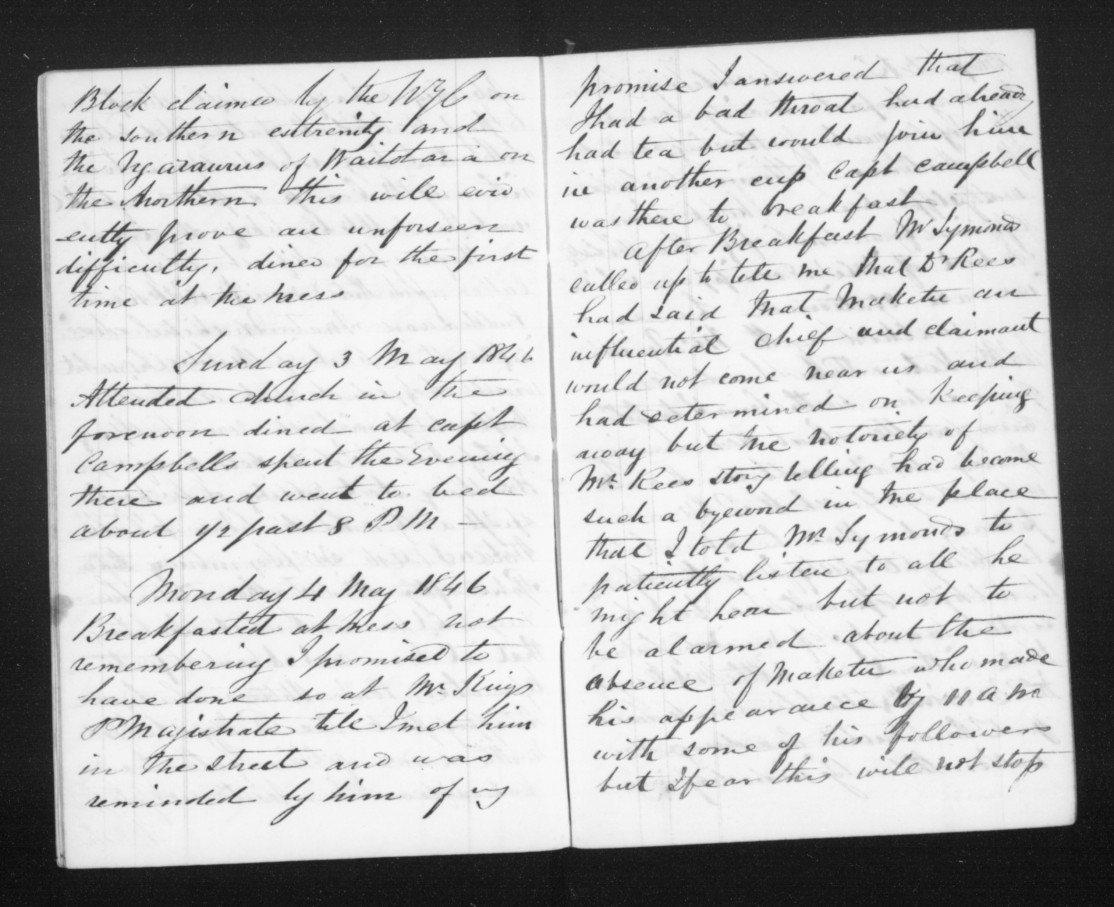 Block claimed by the NZC on
the southern extremity and
the Ngaraurus of Waitotara on
the Northern this will evid
ently prove an unforseen
difficulty. dined for the first
time at the mess
Sunday 3 May 1846
Attended church in the
forenoon dined at capt
Campbells spent the Evening
there and went to bed
about 1/2 past 8 PM —
Monday 4 May 1846
Breakfasted at Mess not
remembering I promised to
have done so at Mr Kings
P Magistrate till I met him
in the street and was
reminded by him of my
promise I answered that
I had a bad throat had already
had tea but would join him
in another cup Capt Campbell
was there to breakfast
After Breakfast Mr Symonds
called up to tell me that Dr Rees
had said that Maketu an
influential chief and claimant
would not come near us and
had determined on keeping
away but the notoriety of
Mr Rees story telling had become
such a byeword in the place
that I told Mr Symonds to
patiently listen to all he
might hear but not to
be alarmed about the
absence of Maketu who made
his appearance by 11 am
with some of his followers
but I fear this will not stop